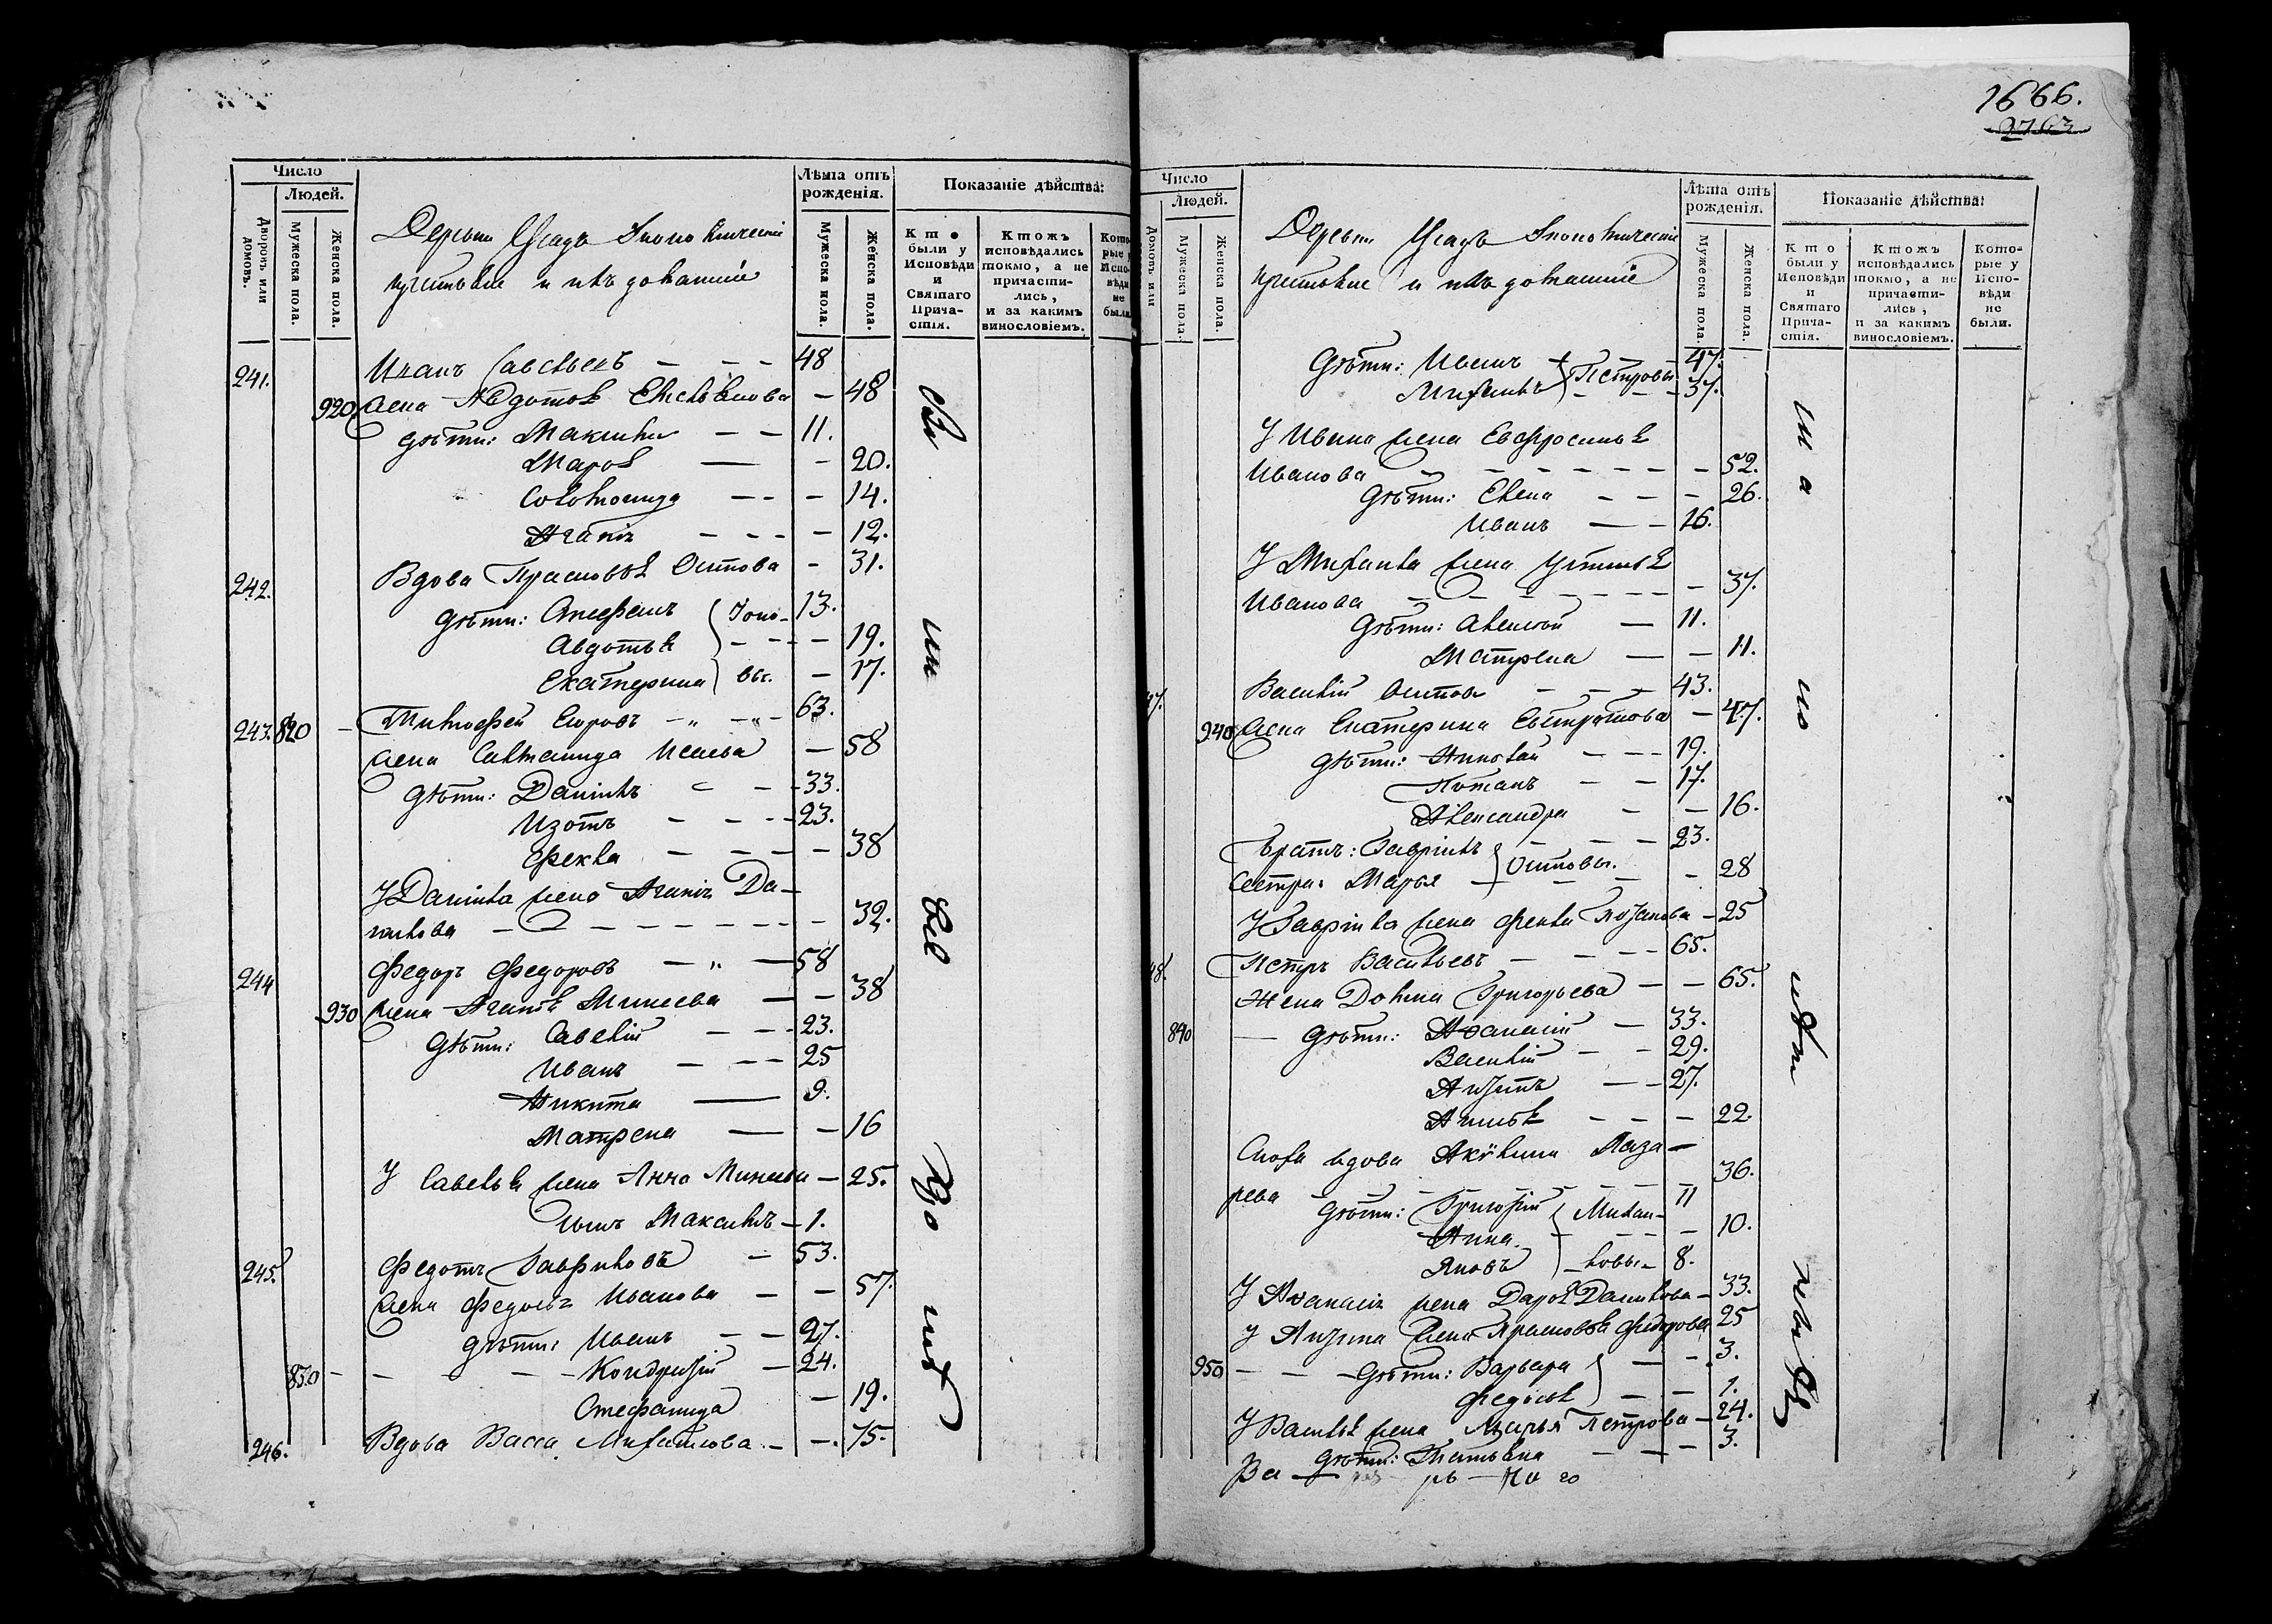 Число
Людей.
Дворовъ или домовъ.
Мужеска пола.
Женска пола.
Лѣта отъ рожденія.
Мужеска пола.
Женска пола.
Показаніе дѣйства:
Кто были у Исповѣди и Святаго Причастія.
Ктожъ исповѣдались токмо, а не причастились, и за какимъ винословіемъ.
Которые у Исповѣди не были.
Деревни Усадъ Экономическіе
крестьяне и ихъ домашніе
241. Иванъ Савельевъ — — — 48
920 жена Авдотья Емельянова — 48
дѣти: Максимъ — — 11.
Марья — — 20.
Соломонида — — — 14.
Агапія — — — — 12.
242. Вдова Прасковья Осипова — 31.
дѣти: Стефанъ 13.
Авдотья — — — 19.
Екатерина вы. — 17.
243. 820 — Тимофей Егоровъ — „ — „ — 63.
жена Салманида Исаева — 58
дѣти: Данила — — 33.
Изотъ — — — 23.
Фекла — — — — 38
У Данила жена Агапія Да-
нилова — — — — — — 32.
244 Федоръ Федоровъ — „ — 58
930 жена Агапія Минеева — — 38
дѣти: Савелій — — 23.
Иванъ — — — 25
Никита — 9.
Матрена — — 16
У Савелья жена Анна Минеева — 25.
сынъ Максимъ — 1.
245. Федотъ Гавриловъ — 53.
жена Федосья Иванова — — 57.
дѣти: Иванъ — — 27.
830 — — — — Кондратій — 24.
Стефанида — 19.
246. Вдова Васса Михайлова — — 75.
1666.
Число
Людей.
домовъ или
Мужеска пола.
Женска пола.
Лѣта отъ рожденія.
Мужеска пола.
Женска пола.
Показаніе дѣйства:
Кто были у Исповѣди и Святаго Причастія.
Ктожъ исповѣдались токмо, а не причастились, и за какимъ винословіемъ.
Которые у Исповѣди не были.
Деревни Усадъ Экономическіе
крестьяне и ихъ домашніе
дѣти: Иванъ Петровы 47.
Михаилъ — — — 37.
У Ивана жена Евфросинья
Иванова — — — — — — 52.
дѣти: Елена — — — 26.
Иванъ — — 16.
У Михаила жена Устинья
Иванова — — — — — — — 37.
дѣти: Алексѣй — 11.
Матрена — — 11.
47. Василій Осиповъ — — — 43.
940 жена Екатерина Евстратова — 47.
дѣти: Николай — — — 19.
Потапъ — — 17.
Александра — — 16.
Братъ: Гаврилъ — — — 23.
Сестра: Марья Осиповы. — — 28
У Гаврила жена Фекла — 25
48. Петръ Васильевъ — — — — 65.
Жена Домна Григорьева — — 65.
840 — дѣти: Аѳанасій — 33.
Василій — — 29.
— — 27.
Анисья — — — 22.
Сноха вдова Акулина Лаза-
рева — — — — — — 36.
дѣти: Григорій Михаи- 11
Анна — — — — 10.
Яковъ — ловы — 8.
У Аѳанасія жена Дарья Данилова — 33.
У жена Прасковья Федорова 25
950 — — — дѣти: Варвара — — 3.
Федосья — — 1.
У Василья жена Марья Петрова — 24.
дѣти: Татьяна — — — 3.